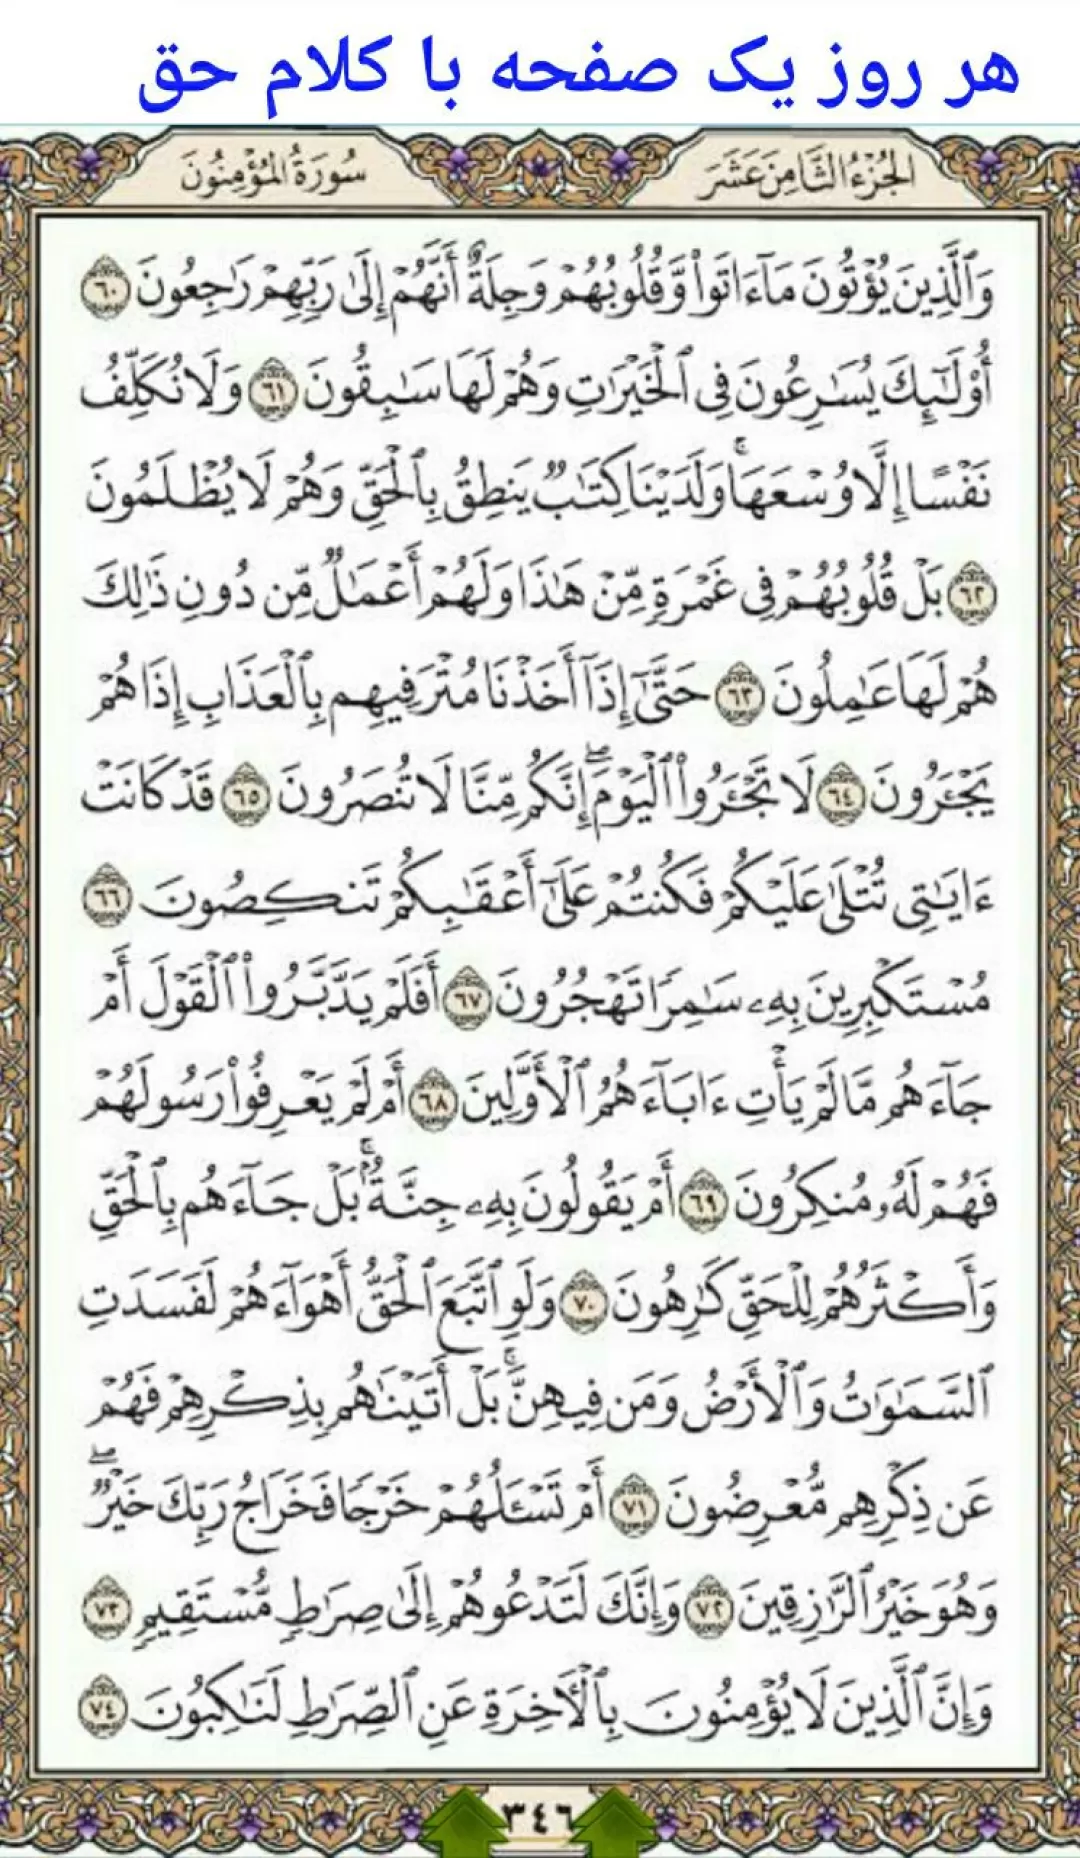 هر روز یک صفحه با کلام حق
الجُزْءُ الثَّامِنَ عَشَرَ
سُورَةُ المُؤْمِنُونَ
وَٱلَّذِينَ يُؤْتُونَ مَآ ءَاتَوا۟ وَّقُلُوبُهُمْ وَجِلَةٌ أَنَّهُمْ إِلَىٰ رَبِّهِمْ رَٰجِعُونَ ٦٠
أُو۟لَـٰٓئِكَ يُسَـٰرِعُونَ فِى ٱلْخَيْرَٰتِ وَهُمْ لَهَا سَـٰبِقُونَ ٦١ وَلَا نُكَلِّفُ
نَفْسًا إِلَّا وُسْعَهَا ۚ وَلَدَيْنَا كِتَـٰبٌ يَنطِقُ بِٱلْحَقِّ وَهُمْ لَا يُظْلَمُونَ
٦٢ بَلْ قُلُوبُهُمْ فِى غَمْرَةٍ مِّنْ هَـٰذَا وَلَهُمْ أَعْمَـٰلٌ مِّن دُونِ ذَٰلِكَ
هُمْ لَهَا عَـٰمِلُونَ ٦٣ حَتَّىٰٓ إِذَآ أَخَذْنَا مُتْرَفِيهِم بِٱلْعَذَابِ إِذَا هُمْ
يَجْـَٔرُونَ ٦٤ لَا تَجْـَٔرُوا۟ ٱلْيَوْمَ ۖ إِنَّكُم مِّنَّا لَا تُنصَرُونَ ٦٥ قَدْ كَانَتْ
ءَايَـٰتِى تُتْلَىٰ عَلَيْكُمْ فَكُنتُمْ عَلَىٰٓ أَعْقَـٰبِكُمْ تَنكِصُونَ ٦٦
مُسْتَكْبِرِينَ بِهِۦ سَـٰمِرًا تَهْجُرُونَ ٦٧ أَفَلَمْ يَدَّبَّرُوا۟ ٱلْقَوْلَ أَمْ
جَآءَهُم مَّا لَمْ يَأْتِ ءَابَآءَهُمُ ٱلْأَوَّلِينَ ٦٨ أَمْ لَمْ يَعْرِفُوا۟ رَسُولَهُمْ
فَهُمْ لَهُۥ مُنكِرُونَ ٦٩ أَمْ يَقُولُونَ بِهِۦ جِنَّةٌۢ ۚ بَلْ جَآءَهُم بِٱلْحَقِّ
وَأَكْثَرُهُمْ لِلْحَقِّ كَـٰرِهُونَ ٧٠ وَلَوِ ٱتَّبَعَ ٱلْحَقُّ أَهْوَآءَهُمْ لَفَسَدَتِ
ٱلسَّمَـٰوَٰتُ وَٱلْأَرْضُ وَمَن فِيهِنَّ ۚ بَلْ أَتَيْنَـٰهُم بِذِكْرِهِمْ فَهُمْ
عَن ذِكْرِهِم مُّعْرِضُونَ ٧١ أَمْ تَسْـَٔلُهُمْ خَرْجًا فَخَرَاجُ رَبِّكَ خَيْرٌ ۖ
وَهُوَ خَيْرُ ٱلرَّٰزِقِينَ ٧٢ وَإِنَّكَ لَتَدْعُوهُمْ إِلَىٰ صِرَٰطٍ مُّسْتَقِيمٍ ٧٣
وَإِنَّ ٱلَّذِينَ لَا يُؤْمِنُونَ بِٱلْـَٔاخِرَةِ عَنِ ٱلصِّرَٰطِ لَنَـٰكِبُونَ ٧٤
٣٤٦